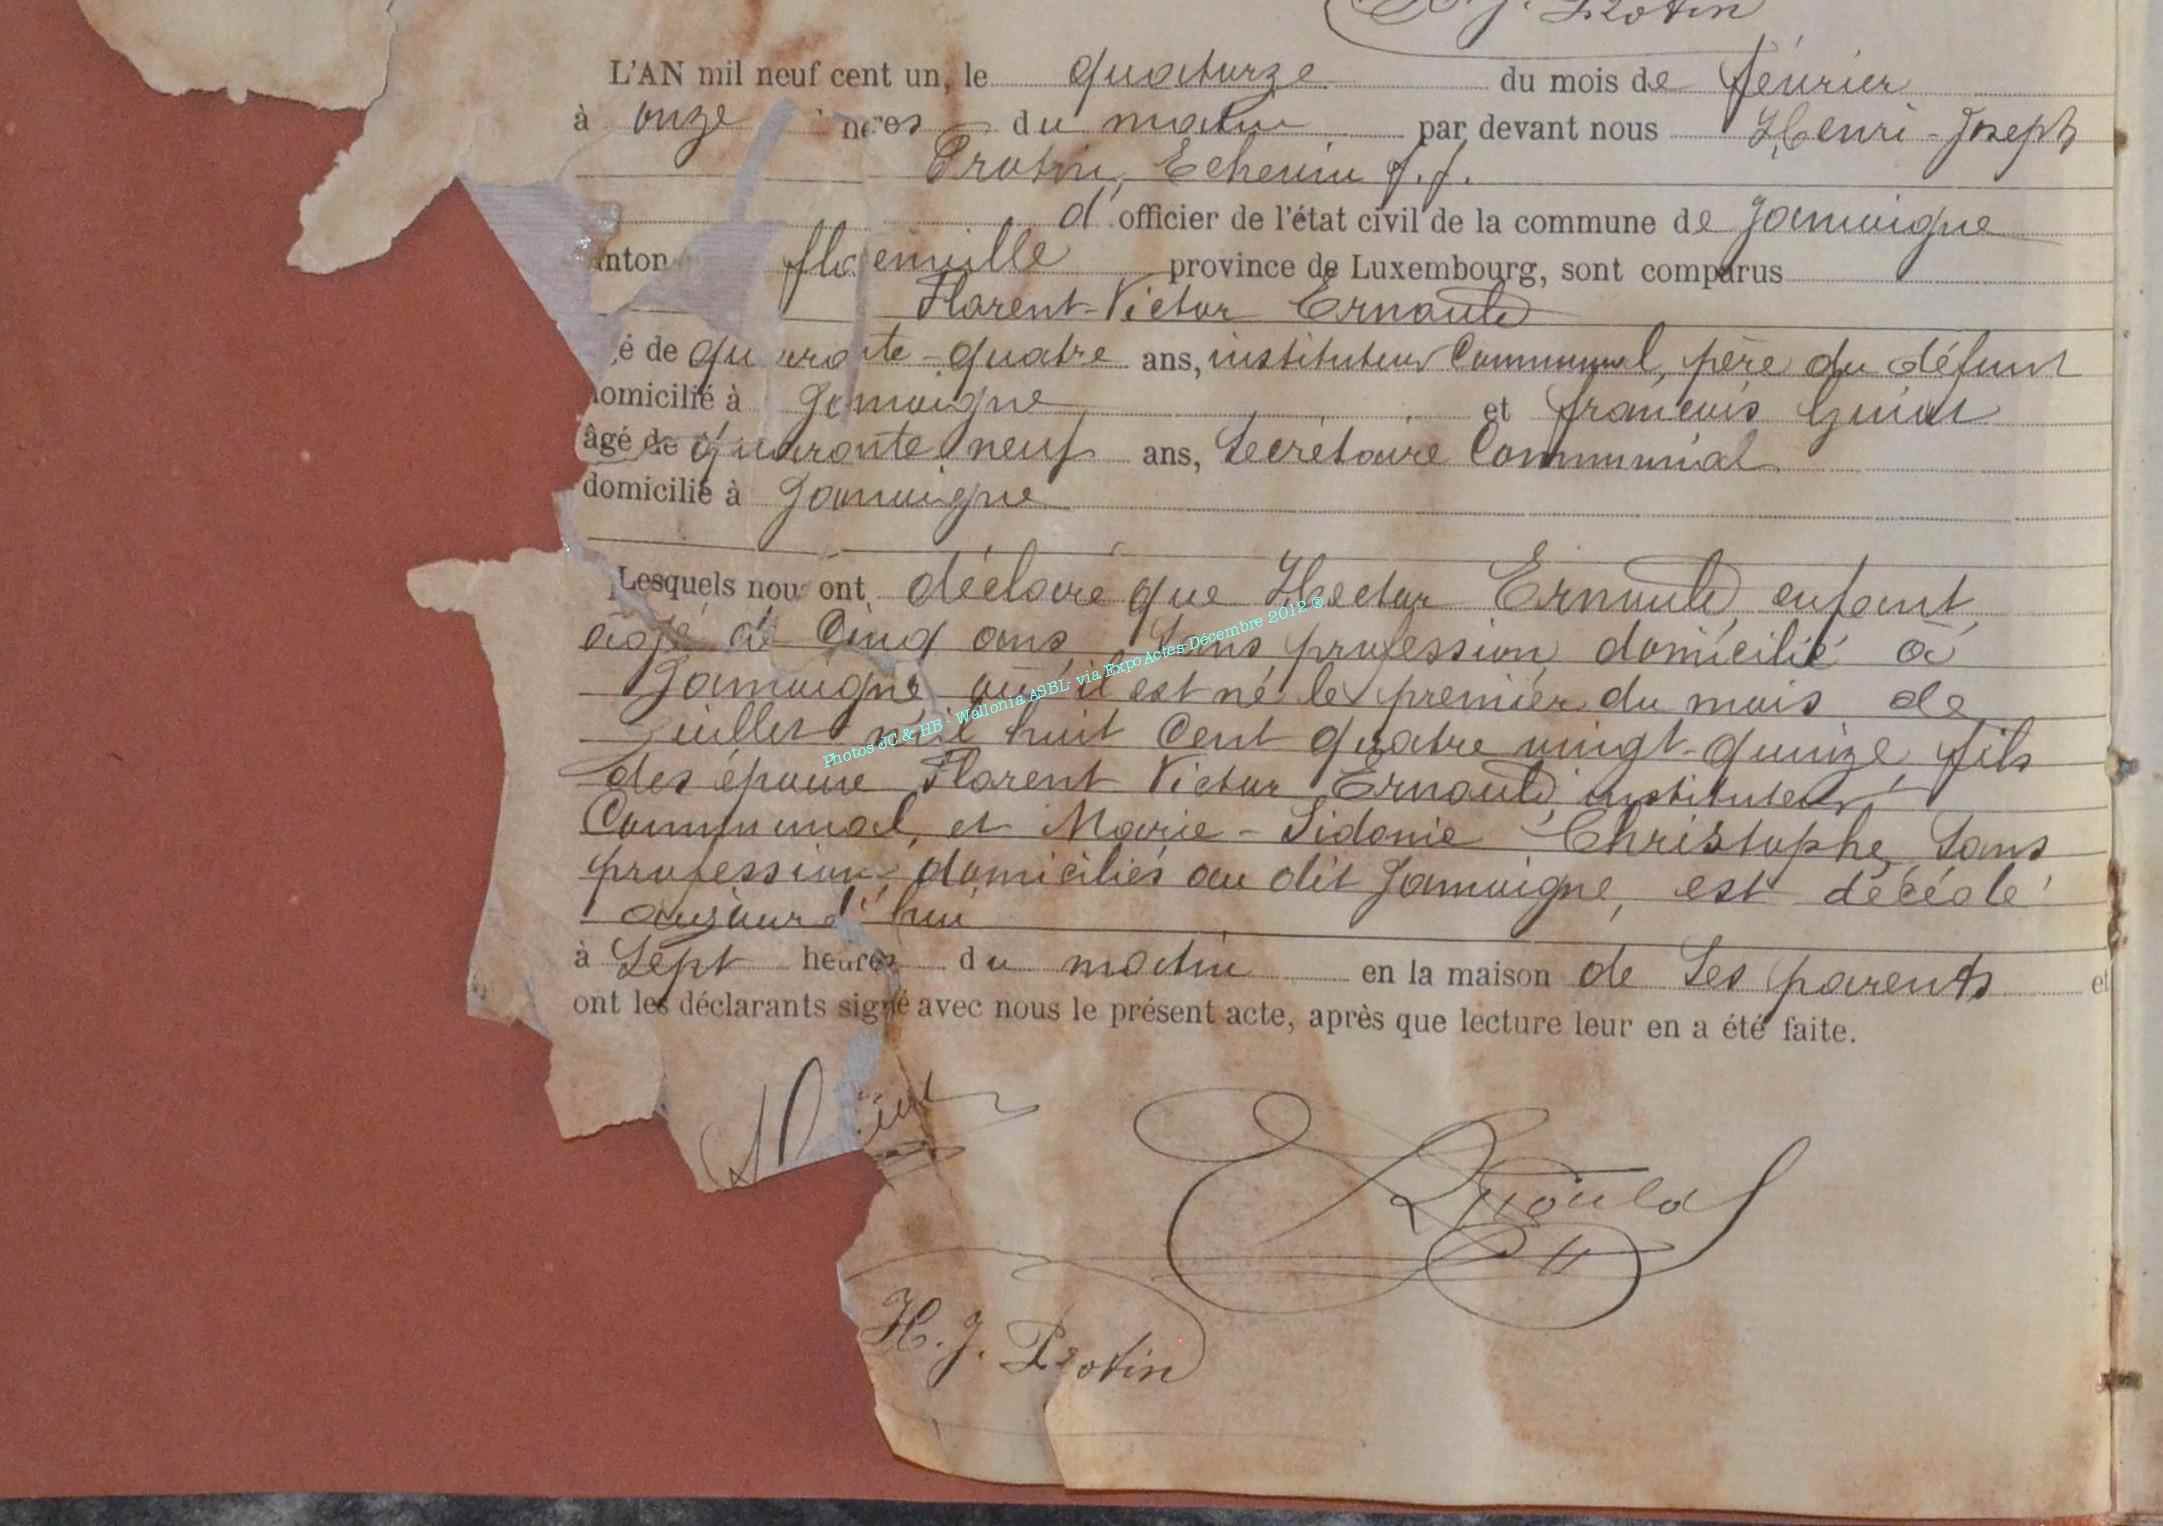 H. J. Protin
L'AN mil neuf cent un, le quatorze du mois de février
à onze heures du matin par devant nous Henri-Joseph
Protin, Echevin f.f.
d'officier de l'état civil de la commune de Jamoigne
anton florenville province de Luxembourg, sont comparus
Florent-Victor Ernould
gé de quarante-quatre ans, instituteur Communal, père du défunt
domicilié à Jamoigne et françois Guiot
âgé de quarante neuf ans, Secrétaire Communal
domicilié à Jamoigne
Lesquels nous ont déclaré que Hector Ernould, enfant
âgé de Cinq ans Sans profession domicilié à
Jamoigne où il est né le premier du mois de
Juillet mil huit Cent quatre vingt-quinze, fils
des époux Florent Victor Ernould instituteur
Communal, et Marie-Sidonie Christophe, Sans
profession, domiciliés au dit Jamoigne, est décédé
aujourd'hui
à Sept heures du matin en la maison de Ses parents et
ont les déclarants signé avec nous le présent acte, après que lecture leur en a été faite.
Ernould
H. J. Protin
Photos JC & HB - Wallonia ASBL- via Expo Actes Décembre 2012 ®